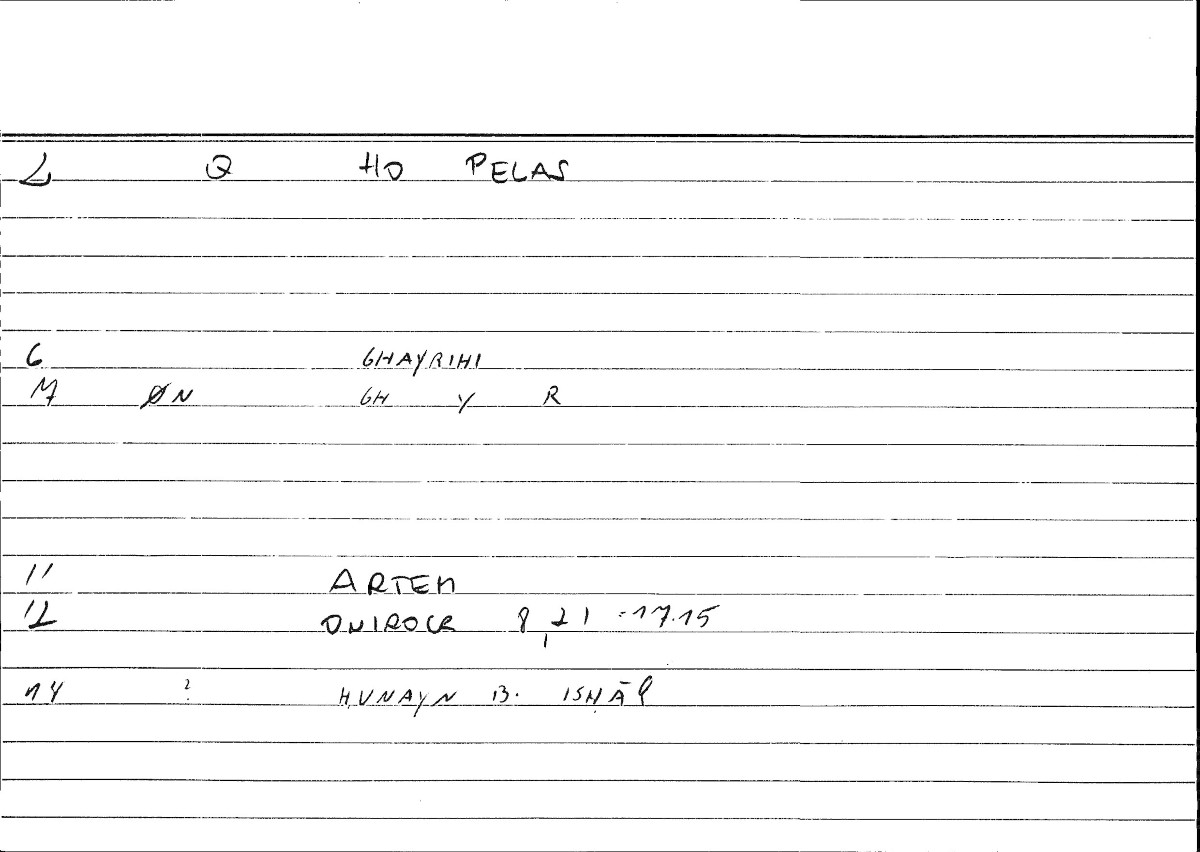 2 Q HO PELAS
6 GHAYRIHI
7 ØN GH Y R
11 ARTEM
12 ONIROCR 8,21 :17.15
14 ? ḤUNAYN B. ISḤĀQ